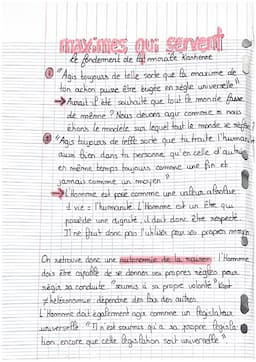 maximes qui servent
le fondement de la morale Kantienne
① "Agis toujours de telle sorte que la maxime de
ton action puisse être érigée en règle universelle"
→ Aurait-il été souhaité que tout le monde fasse
de même ? Nous devons agir comme si nous
étions le modèle sur lequel tout le monde se règle ?
② "Agis toujours de telle sorte que tu traite l'humanité
aussi bien dans ta personne qu'en celle d'autrui
en même temps toujours comme une fin et
jamais comme un moyen"
→ L'Homme est posé comme une valeur absolue
d vie = l'humanité. L'Homme est un être qui
possède une dignité, il doit donc être respecté.
Il ne faut donc pas l'utiliser pour ses propres moyens
On retrouve donc une autonomie de la raison: l'homme
dois être capable de se donner ses propres règles pour
régir sa conduite "soumis à sa propre volonté" Kant
≠ hétéronomie: dépendre des lois des autres.
L'Homme doit également agir comme un législateur
universelle "Il n'est soumis qu'à sa propre législa-
tion, encore que cette législation soit universelle"